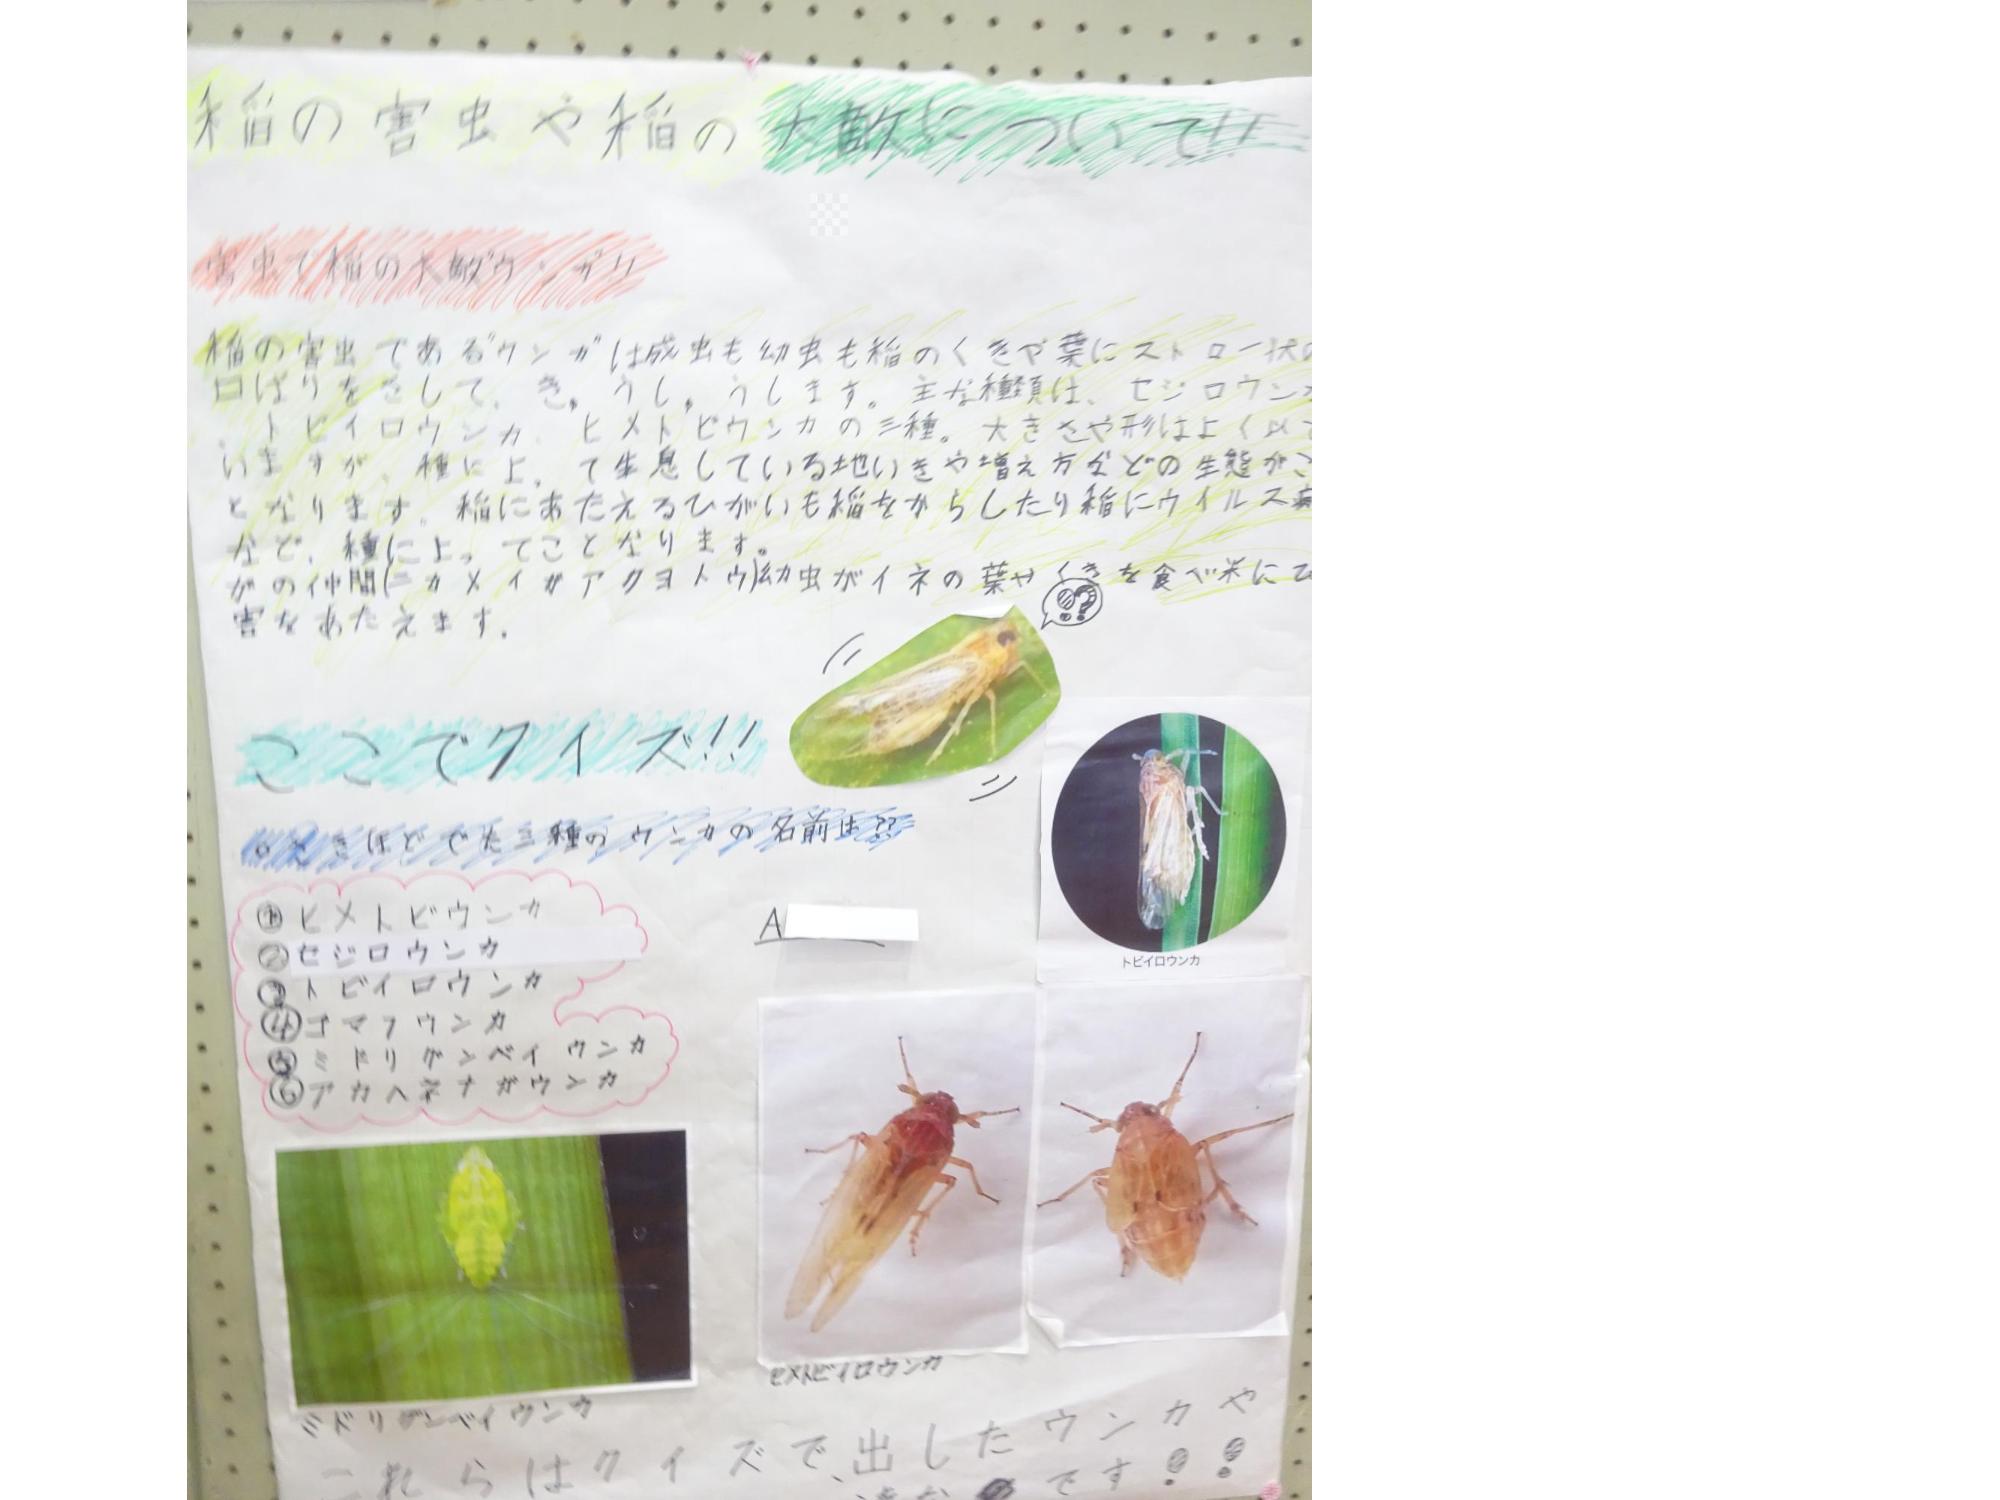 稲の害虫や稲の大敵について!!
害虫で稲の大敵ウンカ!!
稲の害虫であるウンガは成虫も幼虫も稲のくきや葉にストロー状の
口ばりをさして、きゅうしゅうします。主な種類は、セジロウンカ
トビイロウンカ、ヒメトビウンカの三種。大きさや形はよく似て
いますが、種によって生息している地いきや増え方などの生態がこ
となります。稲にあたえるひがいも稲をからしたり稲にウイルス病
など、種によってことなります。
ガの仲間(ニカメイガアクヨトウ)幼虫がイネの葉やくきを食べ米にひ
害をあたえます。
!?
ここでクイズ!!
。さきほどでた三種のウンカの名前は??
①ヒメトビウンカ
②セジロウンカ
③トビイロウンカ
④ゴマフウンカ
⑤ミドリグンベイウンカ
⑥アカヘネナガウンカ
A
トビイロウンカ
ヒメトビイロウンカ
ミドリグンベイウンカ
これらはクイズで、出したウンカや
です!!